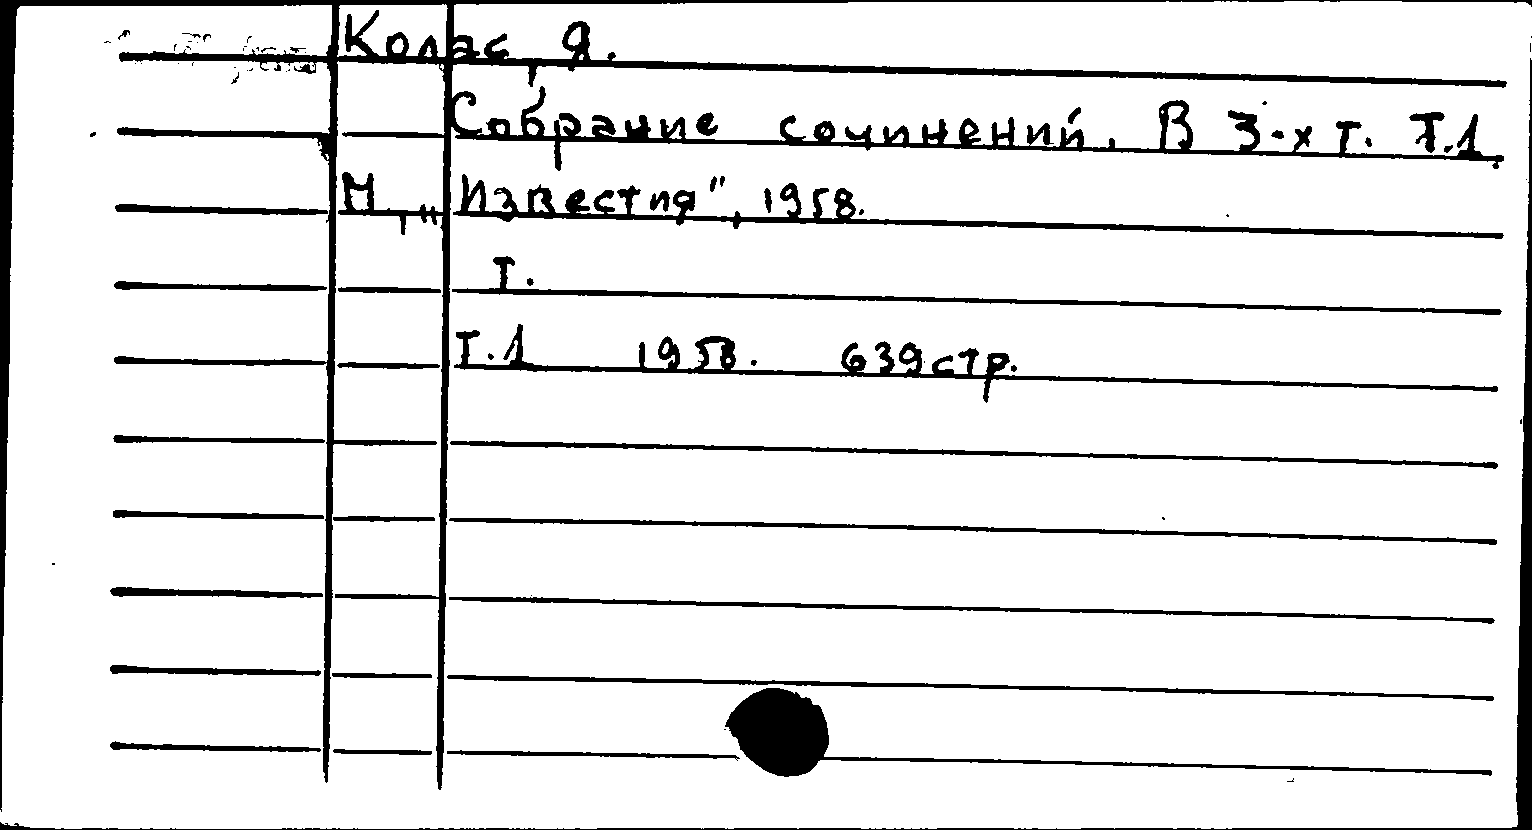 Колас, Я.
Собрание сочинений. В 3-х т. Т.1.
М., „Известия", 1958.
т.
Т.1 1958. 639стр.